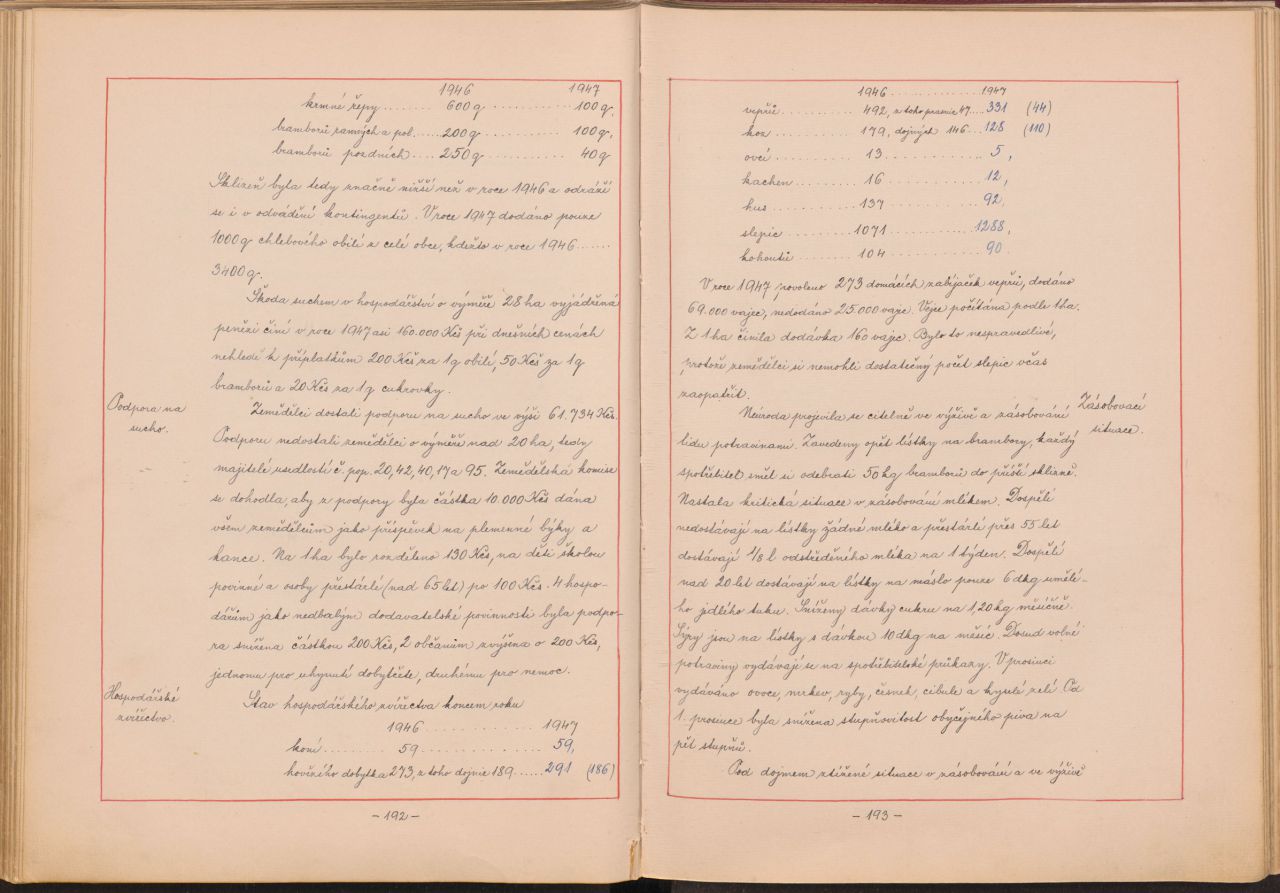 1946 1947
krmné řepy ....... 600q ............. 100q.
bramborů ranných a pol. ..... 200q ............. 100q.
bramborů pozdních .... 250q ............. 40q
Sklizeň byla tedy značně nižší než v roce 1946 a odráží
se i v odvádění kontingentů. V roce 1947 dodáno pouze
1000q chlebového obilí z celé obce, kdežto v roce 1946 ......
3400q.
Škoda suchem v hospodářství o výměře 28 ha vyjádřená
penězi činí v roce 1947 asi 160.000 Kčs při dnešních cenách
nehledě k příplatkům 200 Kčs za 1q obilí, 50 Kčs za 1q
bramborů a 20 Kčs za 1q cukrovky.
Podpora na
sucho.
Zemědělci dostali podporu na sucho ve výši 61.734 Kčs.
Podporu nedostali zemědělci o výměře nad 20 ha, tedy
majitelé usedlostí č. pop. 20, 42, 40, 17 a 95. Zemědělská komise
se dohodla, aby z podpory byla částka 10.000 Kčs dána
všem zemědělcům jako příspěvek na plemenné býky a
kance. Na 1 ha bylo rozděleno 130 Kčs, na děti školou
povinné a osoby přestárlé (nad 65 let) po 100 Kčs. 4 hospo-
dářům jako nedbalým dodavatelské povinnosti byla podpo-
ra snížena částkou 200 Kčs, 2 občanům zvýšena o 200 Kčs,
jednomu pro uhynutí dobytčete, druhému pro nemoc.
Hospodářské
zvířectvo.
Stav hospodářského zvířectva koncem roku
1946 .................... 1947
koní .......... 59 .................... 59,
hovězího dobytka 273, z toho dojnic 189 ...... 291 (186)
- 192 -
1946 ................ 1947
vepřů ........... 492, z toho prasnic 47 .... 331 (44)
koz ............. 179, dojných 146 .... 128 (110)
ovcí ............. 13 ............. 5,
kachen .......... 16 ............. 12,
hus ............. 137 ............. 92,
slepic .......... 1071 ............. 1288,
kohoutů ........ 104 ............. 90
V roce 1947 povoleno 273 domácích zabijaček vepřů, dodáno
69.000 vajec, nedodáno 25.000 vajec. Vejce počítána podle 1 ha.
Z 1 ha činila dodávka 160 vajec. Bylo to nespravedlivé,
protože zemědělci si nemohli dostatečný počet slepic včas
zaopatřit.
Zásobovací
situace.
Neúroda projevila se citelně ve výživě a zásobování
lidu potravinami. Zavedeny opět lístky na brambory, každý
spotřebitel směl si odebrati 50 kg bramborů do příští sklizně.
Nastala kritická situace v zásobování mlékem. Dospělí
nedostávají na lístky žádné mléko a přestárlí přes 55 let
dostávají 1/8 l odstředěného mléka na 1 týden. Dospělí
nad 20 let dostávají na lístky na máslo pouze 6 dkg umělé-
ho jedlého tuku. Sníženy dávky cukru na 1,20 kg měsíčně.
Sýry jsou na lístky s dávkou 10 dkg na měsíc. Dosud volné
potraviny vydávají se na spotřebitelské průkazy. V prosinci
vydáváno ovoce, mrkev, ryby, česnek, cibule a kyselé zelí. Od
1. prosince byla snížena stupňovitost obyčejného piva na
pět stupňů.
Pod dojmem ztížené situace v zásobování a ve výživě
- 193 -